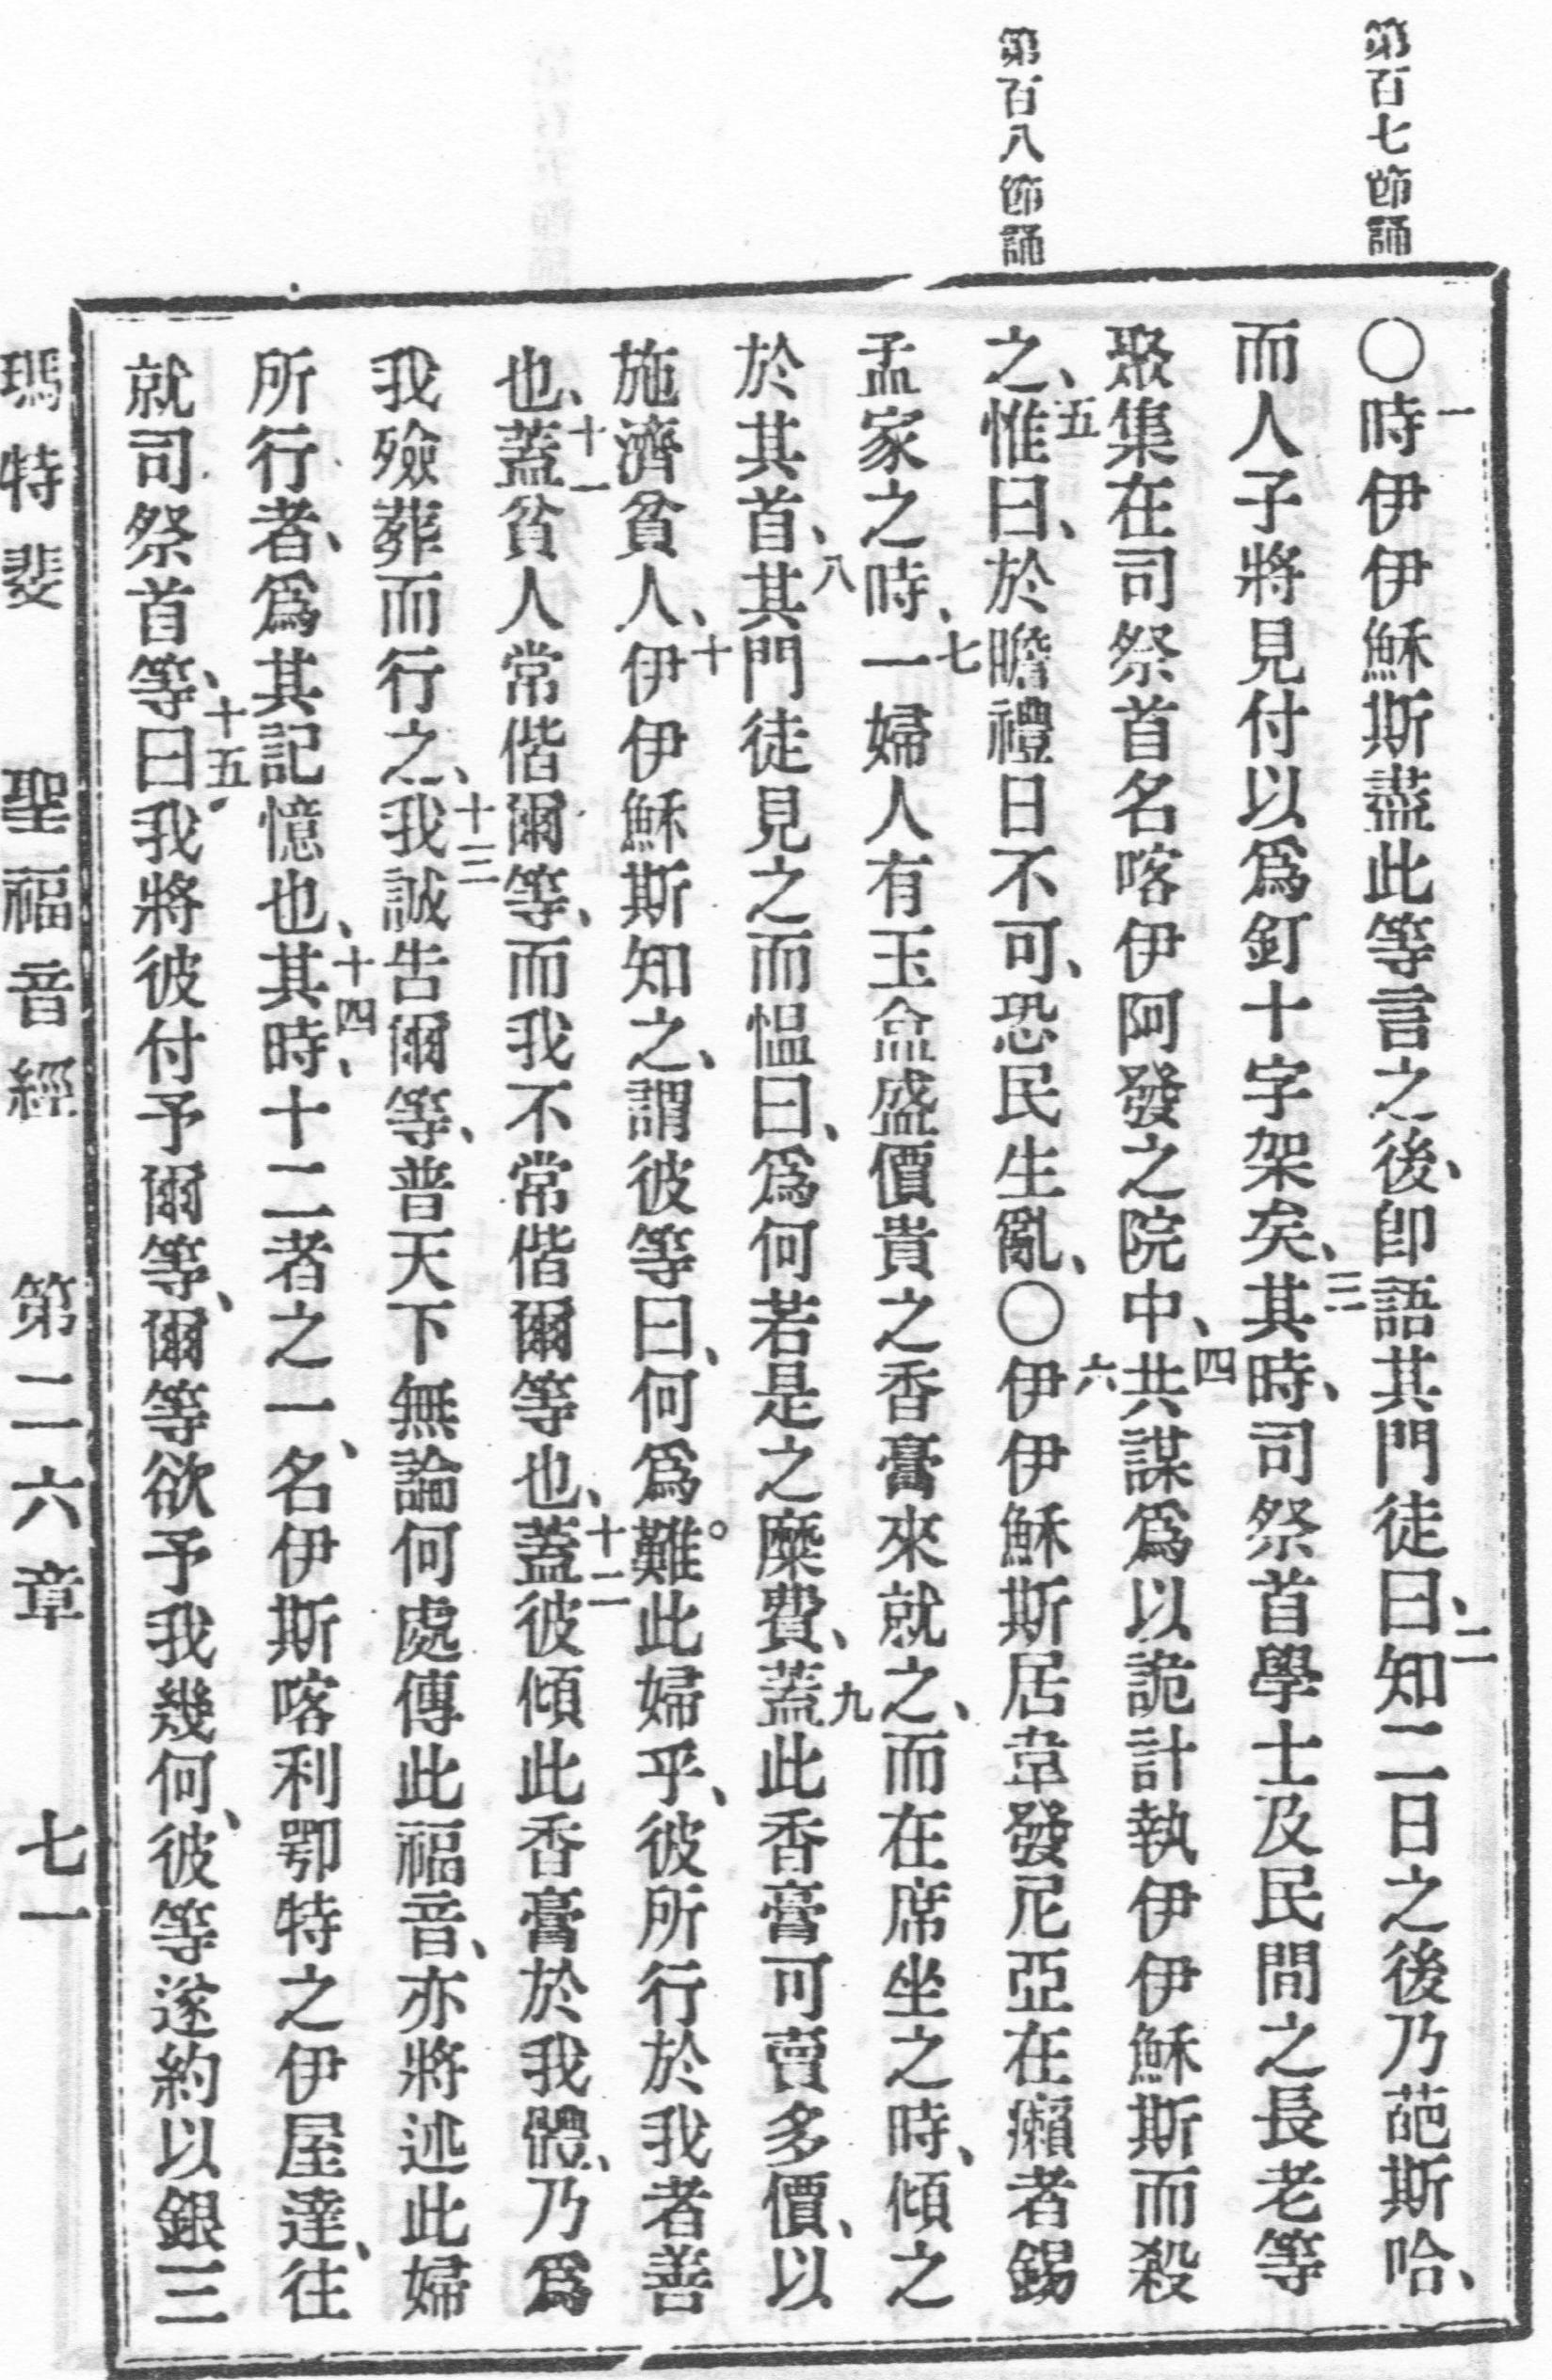 第百七節誦
第百八節誦
○一時伊伊穌斯盡此等言之後、卽語其門徒曰、二知二日之後乃葩斯哈、
而人子將見付以爲釘十字架矣、三其時、司祭首學士及民間之長老等
聚集在司祭首名喀伊阿發之院中、四共謀爲以詭計執伊伊穌斯而殺
之、五惟曰、於瞻禮日不可、恐民生亂、○六伊伊穌斯居韋發尼亞在癩者錫
孟家之時、七一婦人有玉盒盛價貴之香膏來就之、而在席坐之時、傾之
於其首、八其門徒見之而慍曰、爲何若是之糜費、九蓋此香膏可賣多價、以
施濟貧人、十伊伊穌斯知之、謂彼等曰、何爲難此婦乎、彼所行於我者善
也、十一蓋貧人常偕爾等、而我不常偕爾等也、十二蓋彼傾此香膏於我體、乃爲
我殮葬而行之、十三我誠告爾等、普天下無論何處傳此福音、亦將述此婦
所行者、爲其記憶也、十四其時、十二者之一、名伊斯喀利鄂特之伊屋達、往
就司祭首等、十五曰、我將彼付予爾等、爾等欲予我幾何、彼等遂約以銀三
瑪特斐 聖福音經 第二六章 七一